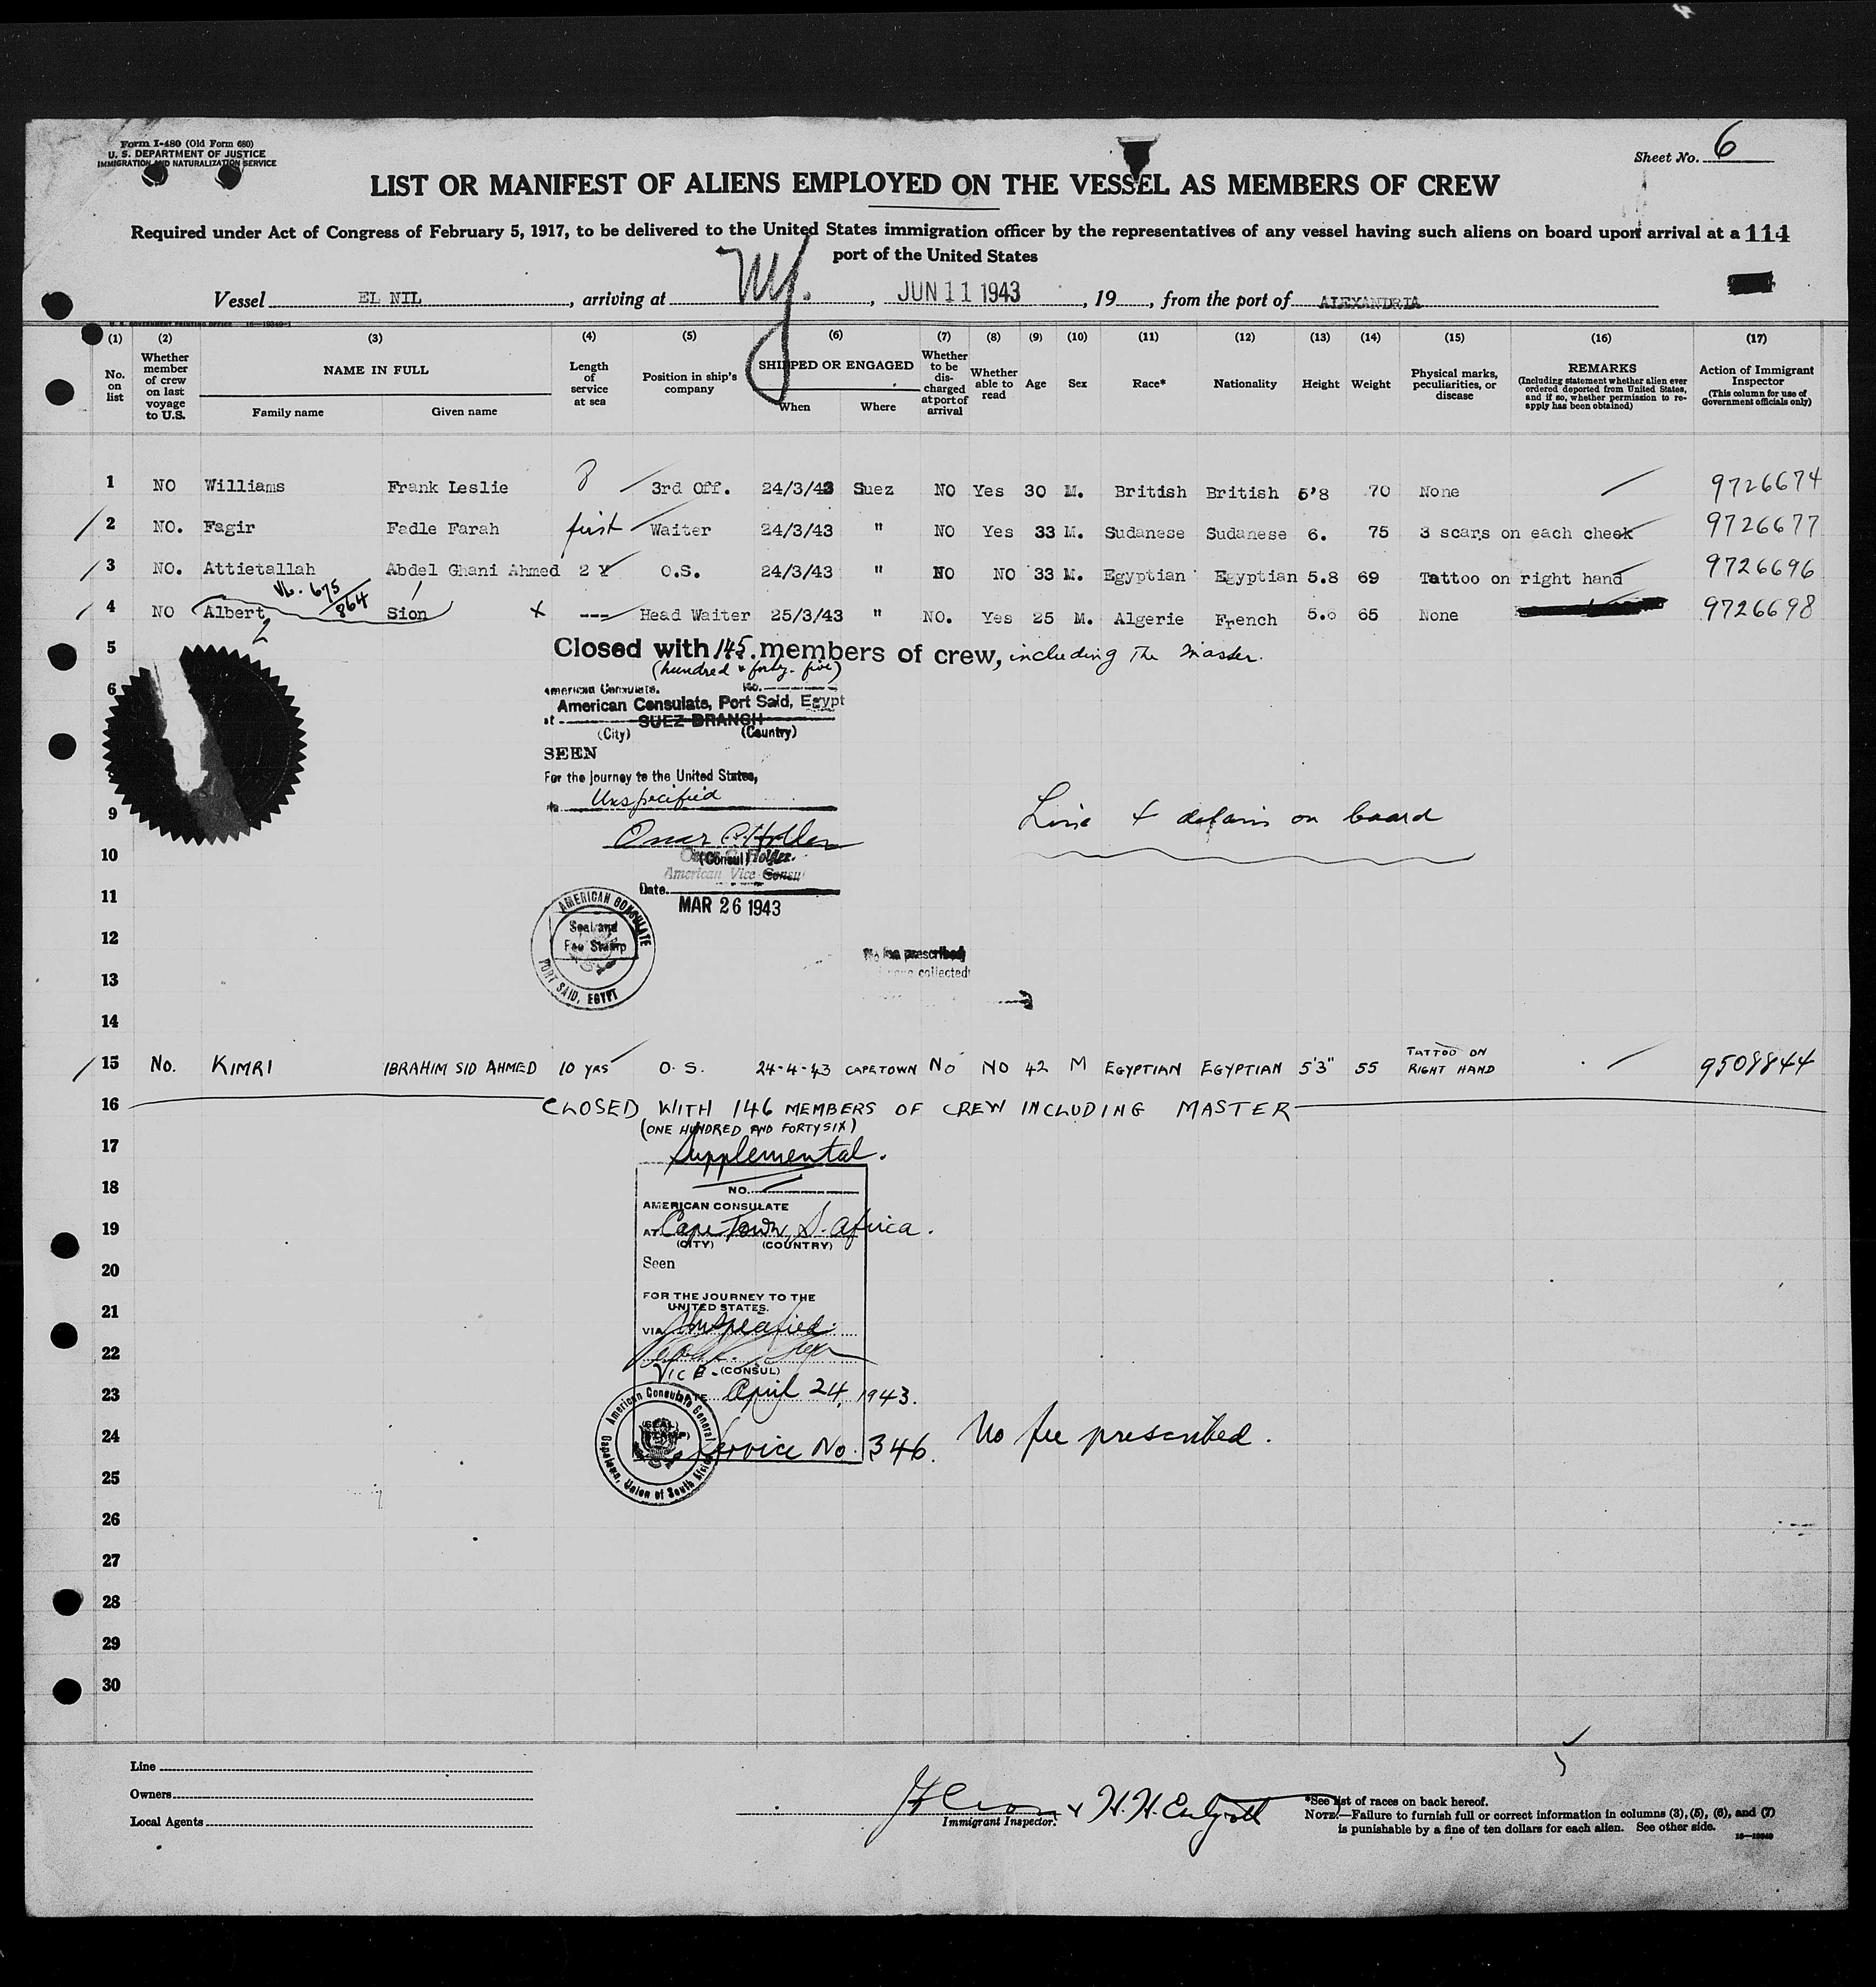 Form I-480 (Old Form 680)
U. S. DEPARTMENT OF JUSTICE
IMMIGRATION AND NATURALIZATION SERVICE
Sheet No. 6
LIST OR MANIFEST OF ALIENS EMPLOYED ON THE VESSEL AS MEMBERS OF CREW
Required under Act of Congress of February 5, 1917, to be delivered to the United States immigration officer by the representatives of any vessel having such aliens on board upon arrival at a 111
port of the United States
Vessel EL NIL, arriving at NY., JUN 11 1943, 19, from the port of ALEXANDRIA
U. S. GOVERNMENT PRINTING OFFICE 16—19349-1
(1) (2) (3) (4) (5) (6) (7) (8) (9) (10) (11) (12) (13) (14) (15) (16) (17)
No. on list
Whether member of crew on last voyage to U.S.
NAME IN FULL
Family name Given name
Length of service at sea
Position in ship's company
SHIPPED OR ENGAGED
When Where
Whether to be discharged at port of arrival
Whether able to read
Age
Sex
Race*
Nationality
Height
Weight
Physical marks, peculiarities, or disease
REMARKS
(Including statement whether alien ever ordered deported from United States, and if so, whether permission to reapply has been obtained)
Action of Immigrant Inspector
(This column for use of Government officials only)
1 NO Williams Frank Leslie 8 3rd Off. 24/3/43 Suez NO Yes 30 M. British British 5'8 70 None 9726674
2 NO. Fagir Fadle Farah first Waiter 24/3/43 " NO Yes 33 M. Sudanese Sudanese 6. 75 3 scars on each cheek 9726677
3 NO. Attietallah Abdel Ghani Ahmed 2 Y O.S. 24/3/43 " NO NO 33 M. Egyptian Egyptian 5.8 69 Tattoo on right hand 9726696
VL. 675/864
4 NO Albert Sion x --- Head Waiter 25/3/43 " NO. Yes 25 M. Algerie French 5.6 65 None 9726698
5 Closed with 145 members of crew, including the master.
(hundred & forty-five)
6 American Consulate. No.
American Consulate, Port Said, Egypt
at SUEZ BRANCH
(City) (Country)
SEEN
For the journey to the United States,
Unspecified
9 Line 4 detain on board
Omar C. Holder
10 (Consul)
American Vice Consul
Date
11 MAR 26 1943
AMERICAN CONSULATE
PORT SAID, EGYPT
Seal and
Fee Stamp
12
No fee prescribed
none collected
13
14
15 No. KIMRI IBRAHIM SID AHMED 10 YRS O. S. 24-4-43 CAPETOWN NO NO 42 M EGYPTIAN EGYPTIAN 5'3" 55 TATTOO ON RIGHT HAND 9509844
16 CLOSED WITH 146 MEMBERS OF CREW INCLUDING MASTER
(ONE HUNDRED AND FORTY SIX)
17 Supplemental.
18 NO.
AMERICAN CONSULATE
19 AT Cape Town, S. Africa.
(CITY) (COUNTRY)
20 Seen
21 FOR THE JOURNEY TO THE
UNITED STATES.
VIA Unspecified
22
VICE-(CONSUL)
23 April 24, 1943.
American Consulate General
Capetown, Union of South Africa
(SEAL)
24 Service No. 346. No fee prescribed.
25
26
27
28
29
30
Line
Owners
Local Agents
Immigrant Inspector.
*See list of races on back hereof.
NOTE.—Failure to furnish full or correct information in columns (3), (5), (6), and (7)
is punishable by a fine of ten dollars for each alien. See other side.